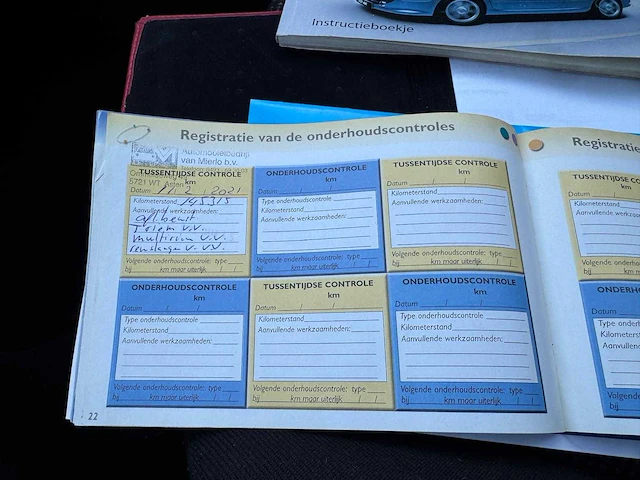 Instructieboekje
Registratie van de onderhoudscontroles
Registratie
Automobielbedrijf
van Mierlo b.v.
5721 WT Asten
TUSSENTIJDSE CONTROLE
km
Datum 11 / 2 / 2021
Kilometerstand 145315
Aanvullende werkzaamheden:
Volgende onderhoudscontrole: type
bij km maar uiterlijk / /
ONDERHOUDSCONTROLE
km
Datum / /
Type onderhoudscontrole
Kilometerstand
Aanvullende werkzaamheden:
Volgende onderhoudscontrole: type
bij km maar uiterlijk / /
TUSSENTIJDSE CONTROLE
km
Datum / /
Kilometerstand
Aanvullende werkzaamheden:
Volgende onderhoudscontrole: type
bij km maar uiterlijk / /
TUSSENTIJDSE CO
Datum
Kilometerstand
Aanvullende werk
Volgende onderho
bij km
ONDERHOUDSCONTROLE
km
Datum / /
Type onderhoudscontrole
Kilometerstand
Aanvullende werkzaamheden:
Volgende onderhoudscontrole: type
bij km maar uiterlijk / /
TUSSENTIJDSE CONTROLE
km
Datum / /
Kilometerstand
Aanvullende werkzaamheden:
Volgende onderhoudscontrole: type
bij km maar uiterlijk / /
ONDERHOUDSCONTROLE
km
Datum / /
Type onderhoudscontrole
Kilometerstand
Aanvullende werkzaamheden:
Volgende onderhoudscontrole: type
bij km maar uiterlijk / /
ONDERH
Datum
Type onderho
Kilometerst
Aanvullen
Volgende
bij
22